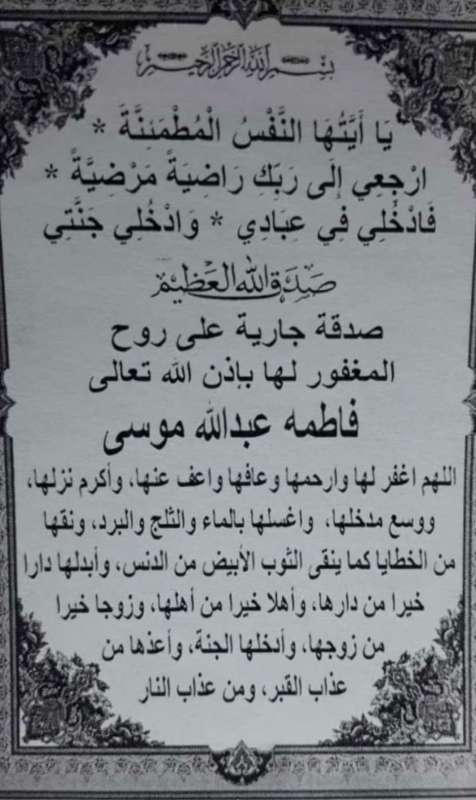 بسم الله الرحمن الرحيم
يَا أَيَّتُهَا النَّفْسُ الْمُطْمَئِنَّةَ *
ارْجِعِي إِلَى رَبِّكِ رَاضِيَةً مَرْضِيَّةً *
فَادْخُلِي فِي عِبَادِي * وَادْخُلِي جَنَّتِي
صدق الله العظيم
صدقة جارية على روح
المغفور لها بإذن الله تعالى
فاطمه عبدالله موسى
اللهم اغفر لها وارحمها وعافها واعف عنها، وأكرم نزلها،
ووسع مدخلها، واغسلها بالماء والثلج والبرد، ونقها
من الخطايا كما ينقى الثوب الأبيض من الدنس، وأبدلها دارا
خيرا من دارها، وأهلا خيرا من أهلها، وزوجا خيرا
من زوجها، وأدخلها الجنة، وأعذها من
عذاب القبر، ومن عذاب النار